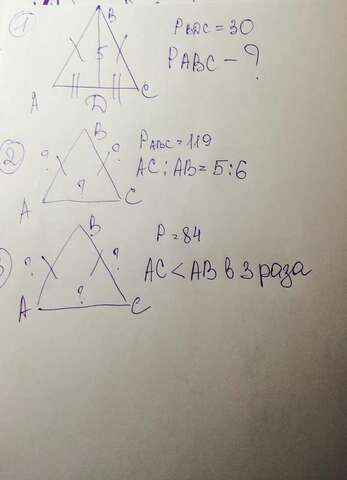 1
B
5
A
D
C
P BDC = 30
P ABC - ?
2
B
? ?
?
A C
P ABC = 119
AC : AB = 5:6
3
B
? ?
?
A C
P = 84
AC < AB в 3 раза